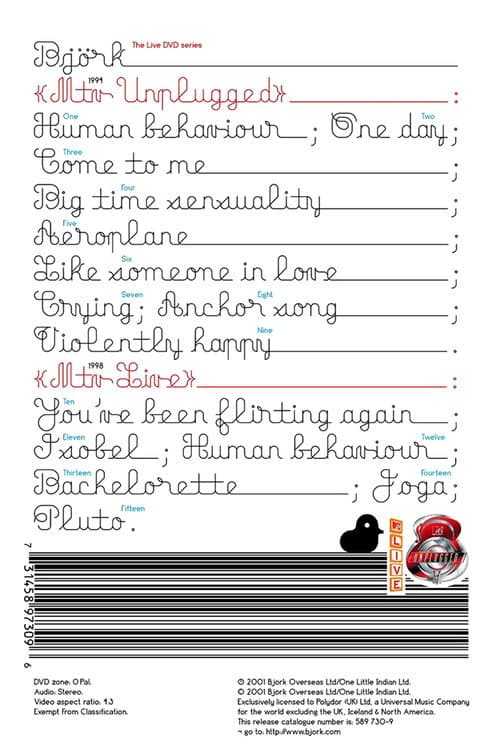 Björk The Live DVD series
1994
«Mtv Unplugged» :
One Two
Human behaviour ; One day ;
Three
Come to me ;
Four
Big time sensuality ;
Five
Aeroplane ;
Six
Like someone in love ;
Seven Eight
Crying ; Anchor song ;
Nine
Violently happy .
1998
«Mtv Live» :
Ten
You've been flirting again ;
Eleven Twelve
Isobel ; Human behaviour ;
Thirteen Fourteen
Bachelorette ; Joga ;
Fifteen
Pluto .
LIVE
7 31458 97309 6
DVD zone: 0 Pal.
Audio: Stereo.
Video aspect ratio: 4.3
Exempt From Classification.
℗ 2001 Bjork Overseas Ltd/One Little Indian Ltd.
© 2001 Bjork Overseas Ltd/One Little Indian Ltd.
Exclusively licensed to Polydor (UK) Ltd, a Universal Music Company
for the world excluding the UK, Iceland & North America.
This release catalogue number is: 589 730-9
¬ go to: http://www.bjork.com